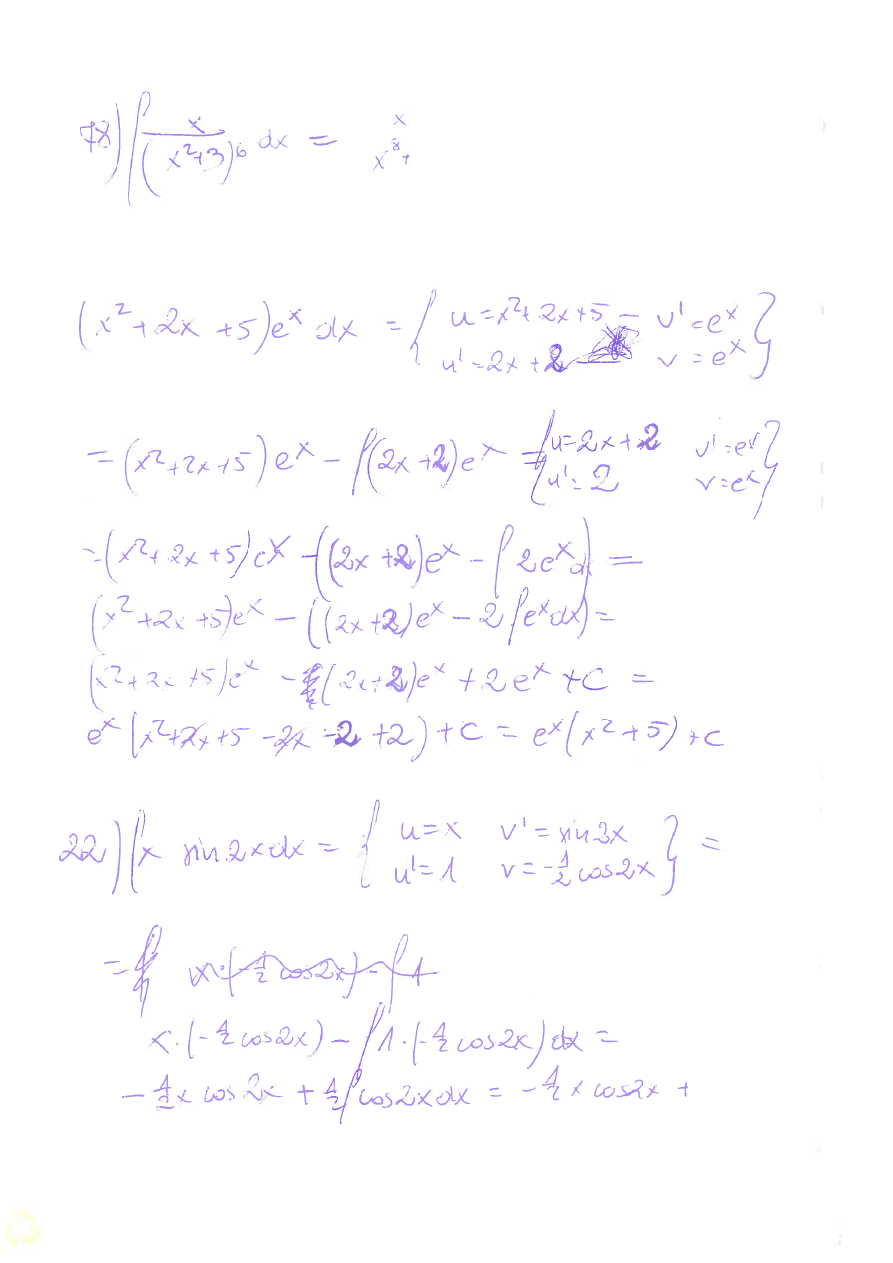 78) ∫ x/(x²+3)⁶ dx = x
x⁸+
(x²+2x+5)eˣ dx = { u=x²+2x+5 – v'=eˣ }
u'=2x+2 v=eˣ
=(x²+2x+5)eˣ – ∫(2x+2)eˣ = { u=2x+2 v'=eˣ }
u'=2 v=eˣ
=(x²+2x+5)eˣ –((2x+2)eˣ – ∫2eˣd) =
(x²+2x+5)eˣ – ((2x+2)eˣ – 2∫eˣdx) =
(x²+2x+5)eˣ – (2x+2)eˣ + 2eˣ + C =
eˣ(x²+2x+5 –2x –2 +2) + C = eˣ(x²+5) + C
22) ∫x sin2xdx = { u=x v'=sin2x } =
u'=1 v=-½cos2x
=∫ x·(-½cos2x) – ∫1
x·(-½cos2x) – ∫1·(-½cos2x)dx =
–½x cos2x + ½∫cos2xdx = –½x cos2x +